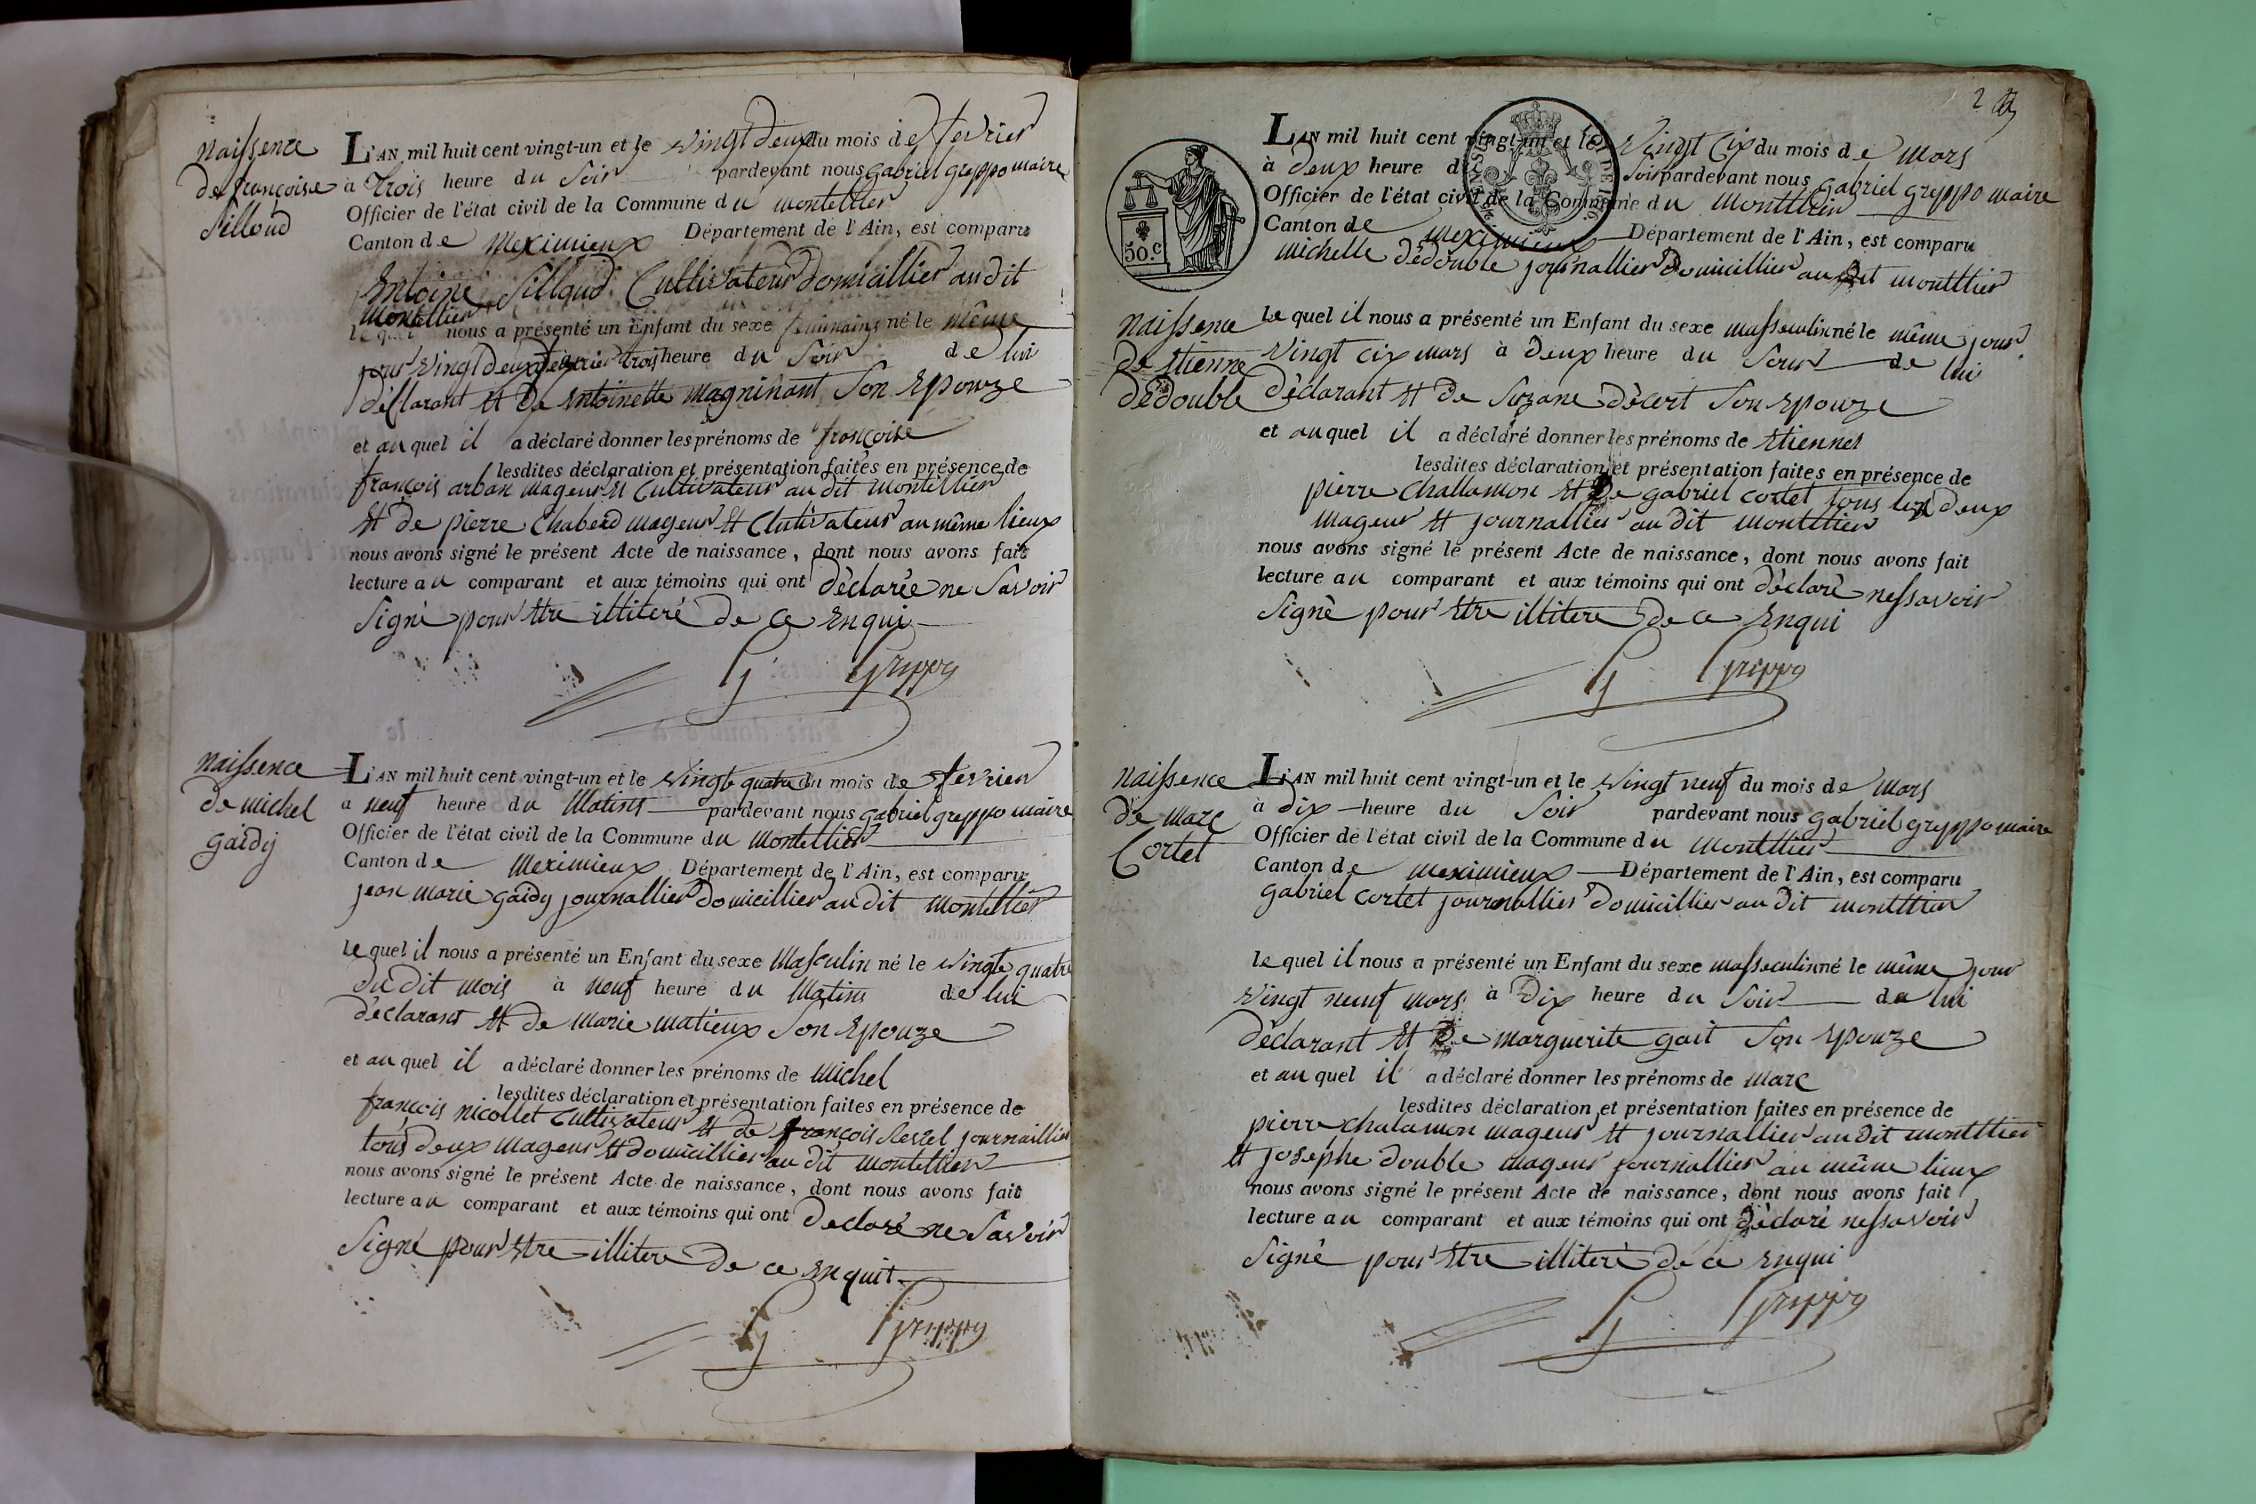 naissence
de françoise
Silloud
L'AN mil huit cent vingt-un et le vingt deux du mois de fevrier
à trois heure du Soir pardevant nous gabriel greppo maire
Officier de l'état civil de la Commune du montellier
Canton de Meximieux Département de l'Ain, est comparu
Entoine Silloud Cultivateur domicillier au dit
montellier
le quel nous a présenté un Enfant du sexe feminains né le même
jour vingt deux fevrier trois heure du Soir de lui
déclarant et de entoinette magninant Son Epouze
et au quel il a déclaré donner les prénoms de françoise
lesdites déclaration et présentation faites en présence de
françois arban mageur et Cultivateur au dit montellier
et de pierre Chaberd mageur et Clutivateur au même lieux
nous avons signé le présent Acte de naissance, dont nous avons fait
lecture au comparant et aux témoins qui ont déclarée ne Savoir
Signé pour etre illiteré de ce enqui
G Greppo
naissence
de michel
gaidy
L'AN mil huit cent vingt-un et le vingte quatre du mois de fevrier
a neuf heure du Matins pardevant nous gabriel greppo maire
Officier de l'état civil de la Commune du Montellier
Canton de Meximieux Département de l'Ain, est comparu
jean marie gaidy journallier domicillier au dit montellier
le quel il nous a présenté un Enfant du sexe Masculin né le vingte quatre
du dit mois à neuf heure du Matins de lui
déclarant et de marie matieux Son Epouze
et au quel il a déclaré donner les prénoms de Michel
lesdites déclaration et présentation faites en présence de
françois nicollet Cultivateur et de françois journaillier
tous deux mageur et domicillier au dit montellier
nous avons signé le présent Acte de naissance, dont nous avons fait
lecture au comparant et aux témoins qui ont declaré ne Savoir
Signé pour etre illitere de ce enquit
G Greppo
2
50.c
L'AN mil huit cent vingt-un et le vingt cix du mois de mars
à deux heure du Soir pardevant nous gabriel greppo maire
Officier de l'état civil de la Commune du montellier
Canton de meximieux Département de l'Ain, est comparu
michelle dédouble journallier domicillier au dit montellier
naissence
de etienne
dédouble
le quel il nous a présenté un Enfant du sexe masseculin né le même jour
vingt cix mars à deux heure du Soir de lui
déclarant et de Suzane décert Son epouze
et au quel il a déclaré donner les prénoms de etiennes
lesdites déclaration et présentation faites en présence de
pierre challamon et de gabriel cortet tous les deux
mageur et journallier au dit montellier
nous avons signé le présent Acte de naissance, dont nous avons fait
lecture au comparant et aux témoins qui ont déclaré nessavoir
Signé pour etre illitere de ce enqui
G Greppo
naissence
de marc
Cortet
L'AN mil huit cent vingt-un et le vingt neuf du mois de mars
à dix heure du Soir pardevant nous gabriel greppo maire
Officier de l'état civil de la Commune du montellier
Canton de meximieux Département de l'Ain, est comparu
gabriel cortet journallier domicillier au dit montellier
le quel il nous a présenté un Enfant du sexe masseculin né le même jour
vingt neuf mars à dix heure du Soir de lui
déclarant et de marguerite gait Son epouze
et au quel il a déclaré donner les prénoms de marc
lesdites déclaration et présentation faites en présence de
pierre chalamon mageur et journallier au dit montellier
et josephe double mageur journallier au même lieux
nous avons signé le présent Acte de naissance, dont nous avons fait
lecture au comparant et aux témoins qui ont déclaré nessavoir
Signé pour etre illiteré de ce enqui
G Greppo